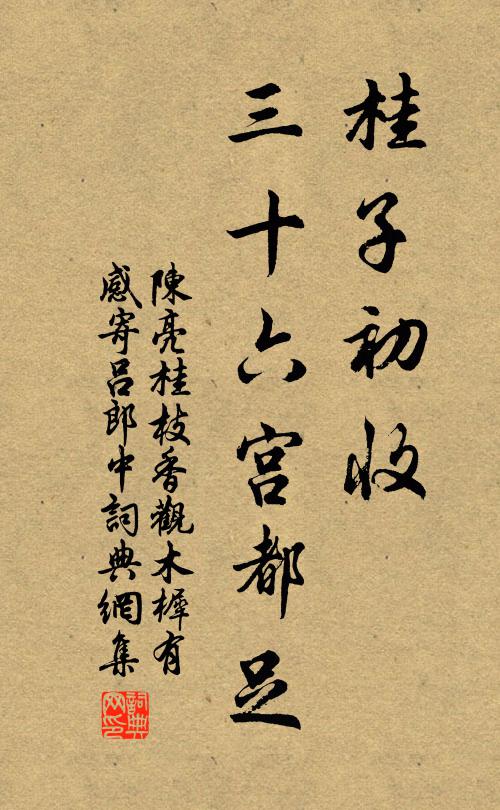 桂子初收
三十六宫都足
陳亮桂枝香觀木樨有
感寄吕郎中詞典網集
詞典网印